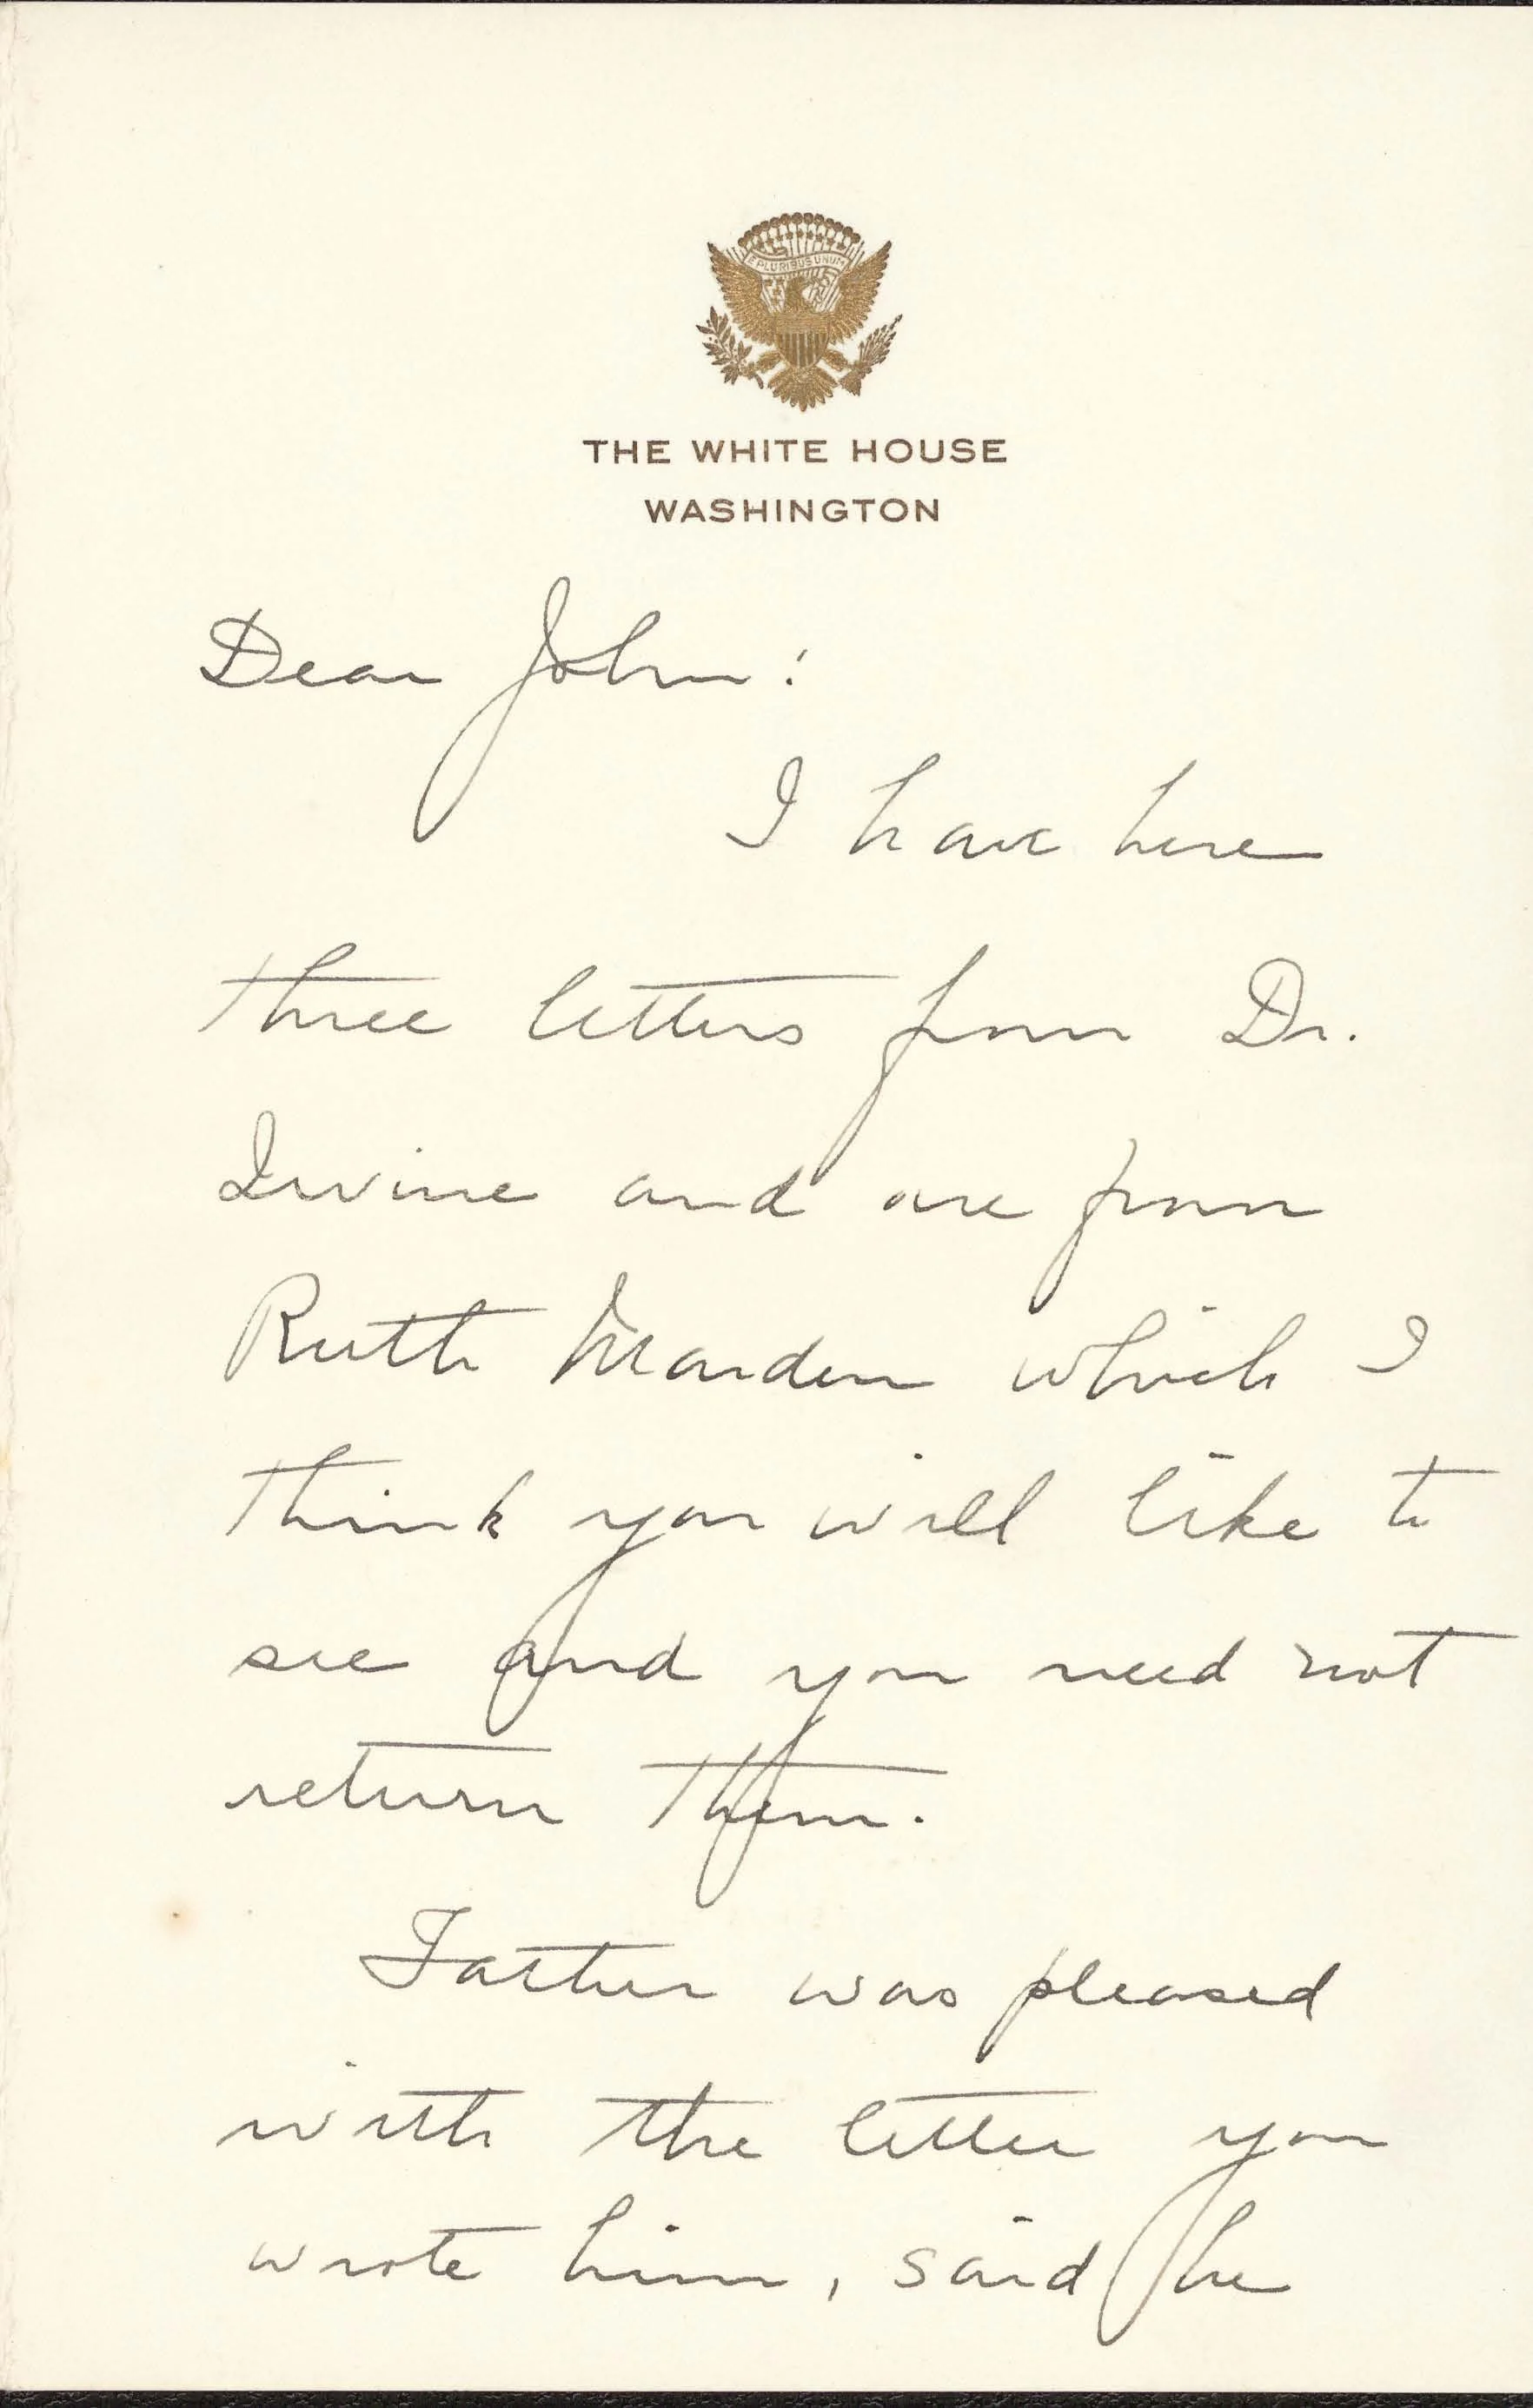 E PLURIBUS UNUM
THE WHITE HOUSE
WASHINGTON
Dear John:
I have here
three letters from Dr.
Irvine and one from
Ruth Marden which I
think you will like to
see and you need not
return them.
Father was pleased
with the letter you
wrote him, said he